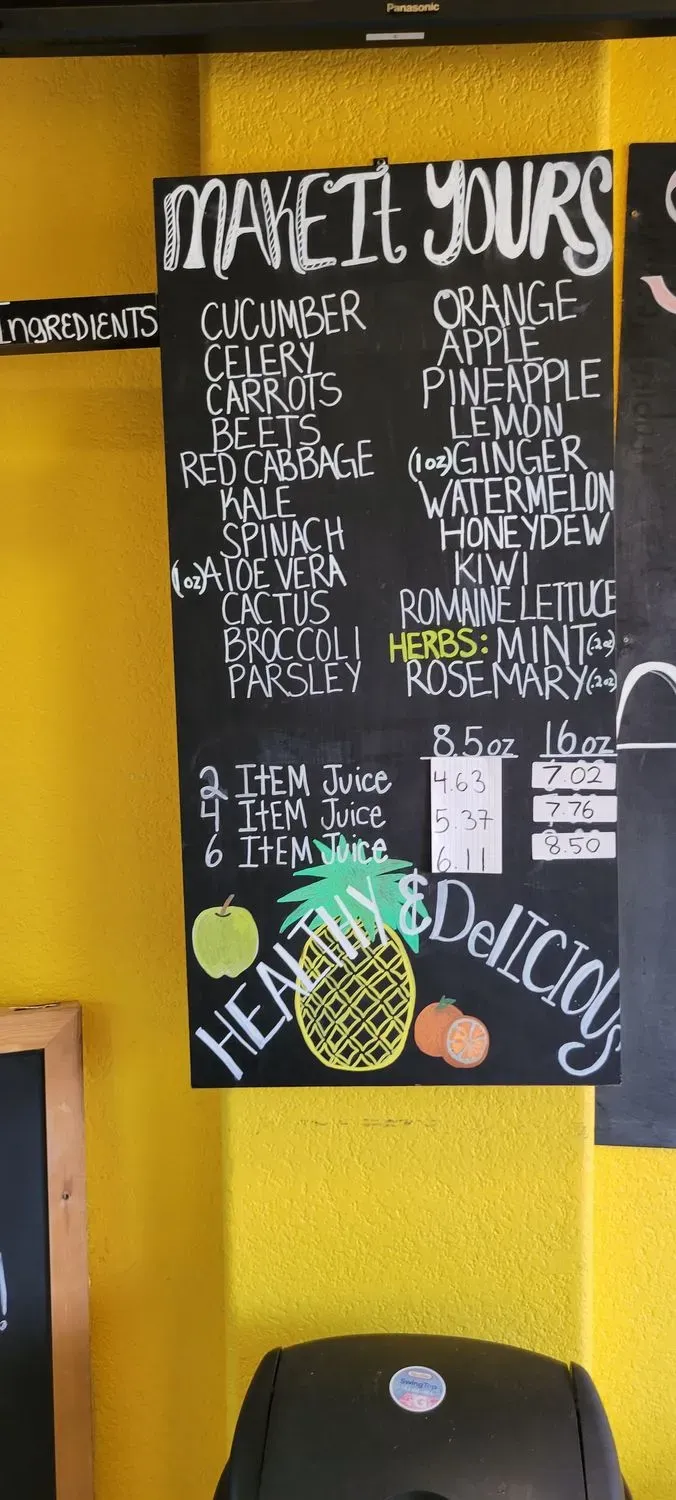 Panasonic
MAKE It YOURS
IngREDIENTS
CUCUMBER
CELERY
CARROTS
BEETS
RED CABBAGE
KALE
SPINACH
(1oz) ALOE VERA
CACTUS
BROCCOLI
PARSLEY
ORANGE
APPLE
PINEAPPLE
LEMON
(1oz) GINGER
WATERMELON
HONEYDEW
KIWI
ROMAINE LETTUCE
HERBS: MINT (.2oz)
ROSEMARY (.2oz)
8.5oz 16oz
2 ItEM Juice 4.63 7.02
4 ItEM Juice 5.37 7.76
6 ItEM Juice 6.11 8.50
HEALTHY & DelICIOUS
SwingTop
!